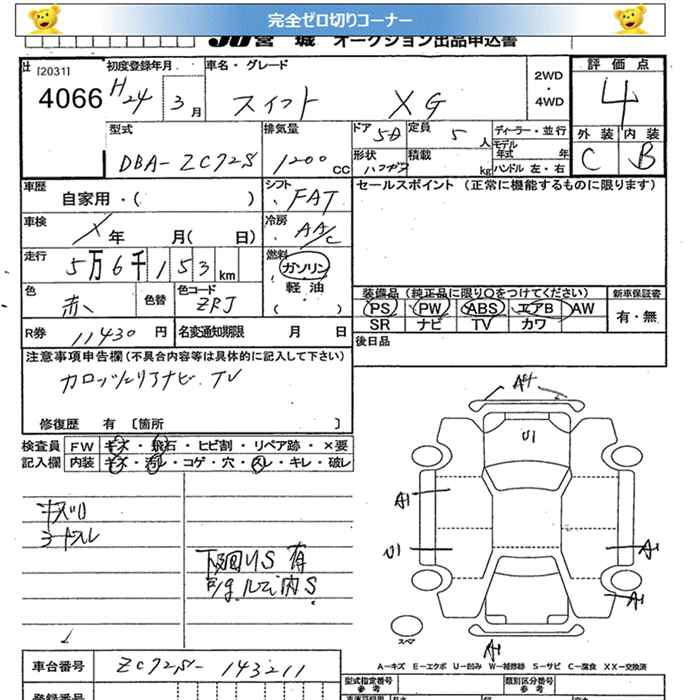 完全ゼロ切りコーナー
JU宮城 オークション出品申込書
[2031] 初度登録年月 車名・グレード 2WD・4WD 評価点
4066 H24 3月 スイフト XG 4
型式 排気量 ドア 定員 ディーラー・並行 外装 内装
DBA-ZC72S 1200CC 5D 5人 モデル年式 年 C B
形状 積載 kg ハンドル 左・右
車歴 自家用・( ) シフト FAT セールスポイント (正常に機能するものに限ります)
車検 X年 月( 日) 冷房 AA/C
走行 5万6千153km 燃料 ガソリン・軽油・( )
色 赤 色替 色コード ZRJ 装備品 (純正品に限り○をつけてください) 新車保証書
PS PW ABS エアB AW 有・無
R券 11430円 名変通知期限 月 日 SR ナビ TV カワ
注意事項申告欄 (不具合内容等は具体的に記入して下さい) 後日品
カロッツェリアナビ.TV
修復歴 有 [箇所 ]
検査員 FW キズ・飛石・ヒビ割・リペア跡・×要
記入欄 内装 キズ・汚レ・コゲ・穴・スレ・キレ・破レ
A4
U1
キズU
A1
シートスレ
下廻りS 有
U1 A1
内S
A1
スペア
A1
A─キズ E─エクボ U─凹み W─補修跡 S─サビ C─腐食 XX─交換済
車台番号 ZC72S-143211 型式指定番号 参考 類別区分番号 参考
登録番号